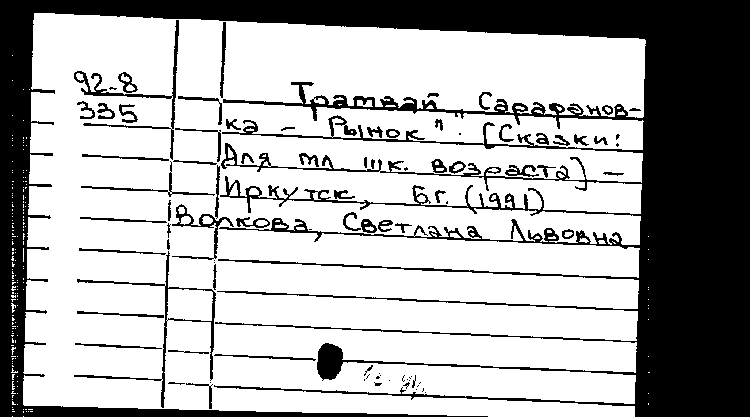 92-8
335
Трамвай „Сарафанов-
ка – Рынок": [Сказки:
Для мл. шк. возраста] –
Иркутск, Б.г. (1991)
Волкова, Светлана Львовна